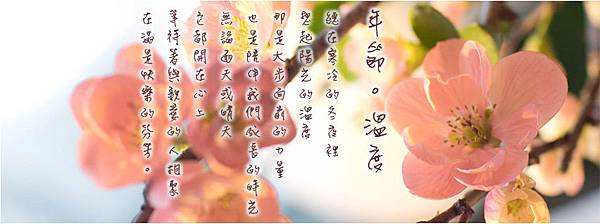 年節。溫度
總在寒冷的冬夜裡
想起陽光的溫度
那是大步向前的力量
也是陪伴我們成長的時光
無論雨天或晴天
它都開在心上
等待著與親愛的人相聚
在滿是快樂的芬芳。